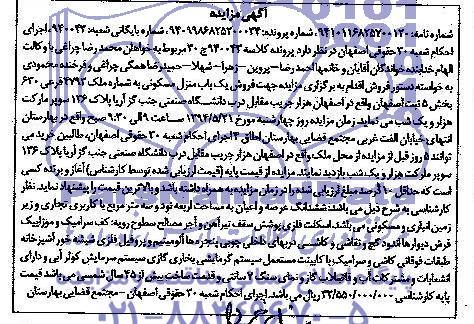 آگهی مزایده
شماره نامه: ۹۴۱۰۱۱۶۸۲۵۲۰۰۱۲۰ شماره پرونده: ۹۴۰۹۹۸۶۸۲۵۲۰۰۰۳۴ شماره بایگانی شعبه: ۹۴۰۰۴۳ اجرای
احکام شعبه ۳۰ حقوقی اصفهان در نظر دارد پرونده کلاسه ۹۴۰۰۴۳ ج ۳۰ مربوط به خواهان محمدرضا چراغی با وکالت
الهام خدابنده خواندگان آقایان و خانمها احمدرضا - پروین - زهرا - شهلا - حمیدرضا همگی چراغی و فرخنده محمودی
به خواسته دستور فروش اقدام به برگزاری مزایده جهت فروش یک باب منزل مسکونی به شماره ملک ۲۷۹۳ فرعی ۶۳۰
بخش ۵ ثبت اصفهان واقع در اصفهان هزار جریب مقابل درب دانشگاه صنعتی جنب گز آریا پلاک ۱۳۶ سوپر مارکت
هزار و یک شب می نماید زمان مزایده روز چهارشنبه مورخ ۱۳۹۴/۵/۲۱ ساعت ۹ الی ۹:۳۰ صبح واقع در بهارستان
انتهای خیابان الفت غربی مجتمع قضایی بهارستان اطاق اجرای احکام شعبه ۳۰ حقوقی اصفهان، طالبین خرید می
توانند ۵ روز قبل از مزایده از محل ملک واقع در اصفهان هزار جریب مقابل درب دانشگاه صنعتی جنب گز آریا پلاک ۱۳۶
سوپر مارکت هزار و یک شب بازدید نمایند. مزایده از قیمت پایه (قیمت ارزیابی شده توسط کارشناس) آغاز و برنده کسی
است که حداقل ۱۰ درصد مبلغ ارزیابی شده را در زمان مزایده به همراه داشته باشد و بالاترین قیمت را پیشنهاد نماید. نظر
کارشناسی به شرح ذیل می باشد: ششدانگ عرصه و اعیان به مساحت اربعه نود و سه متر مربع با کاربری تجاری و زیر
زمین انباری و مسکونی می باشد. اسکلت فلزی پوشش سقف تیرآهن و آجر مصالح سطوح رویه: کف سرامیک و موزاییک
فرش دیوارها اندود گچ و نقاشی و کاشی دربهای داخلی چوبی پنجره ها آلومینیوم و پروفیل فلزی شیشه خور آشپزخانه
طبقات فوقانی کاشی و سرامیک با کابینت مستعمل سیستم گرمایشی بخاری گازی سیستم سرمایش کولر آبی و دارای
انشعابات و مشترکات آب و فاضلاب گاز و نمای سنگ ۲ سانتی و قدمت ساخت بیش از ۲۵ سال شمسی می باشد قیمت
پایه کارشناسی ۳۴/۵۵۰/۰۰۰/۰۰۰ ریال می باشد. اجرای احکام شعبه ۳۰ حقوقی اصفهان - مجتمع قضایی بهارستان